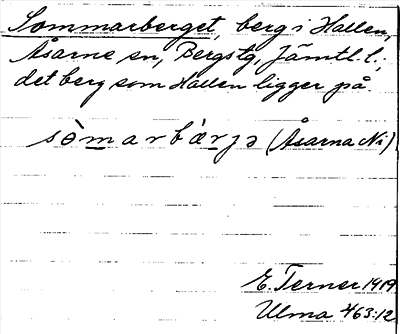 Sommarberget, berg i Hallen,
Åsarne sn, Bergstg, Jämtl. l.;
det berg som Hallen ligger på.
sòmarbæ̀rjə (Åsarna Ni)
E. Terner 1919
Ulma 463:12